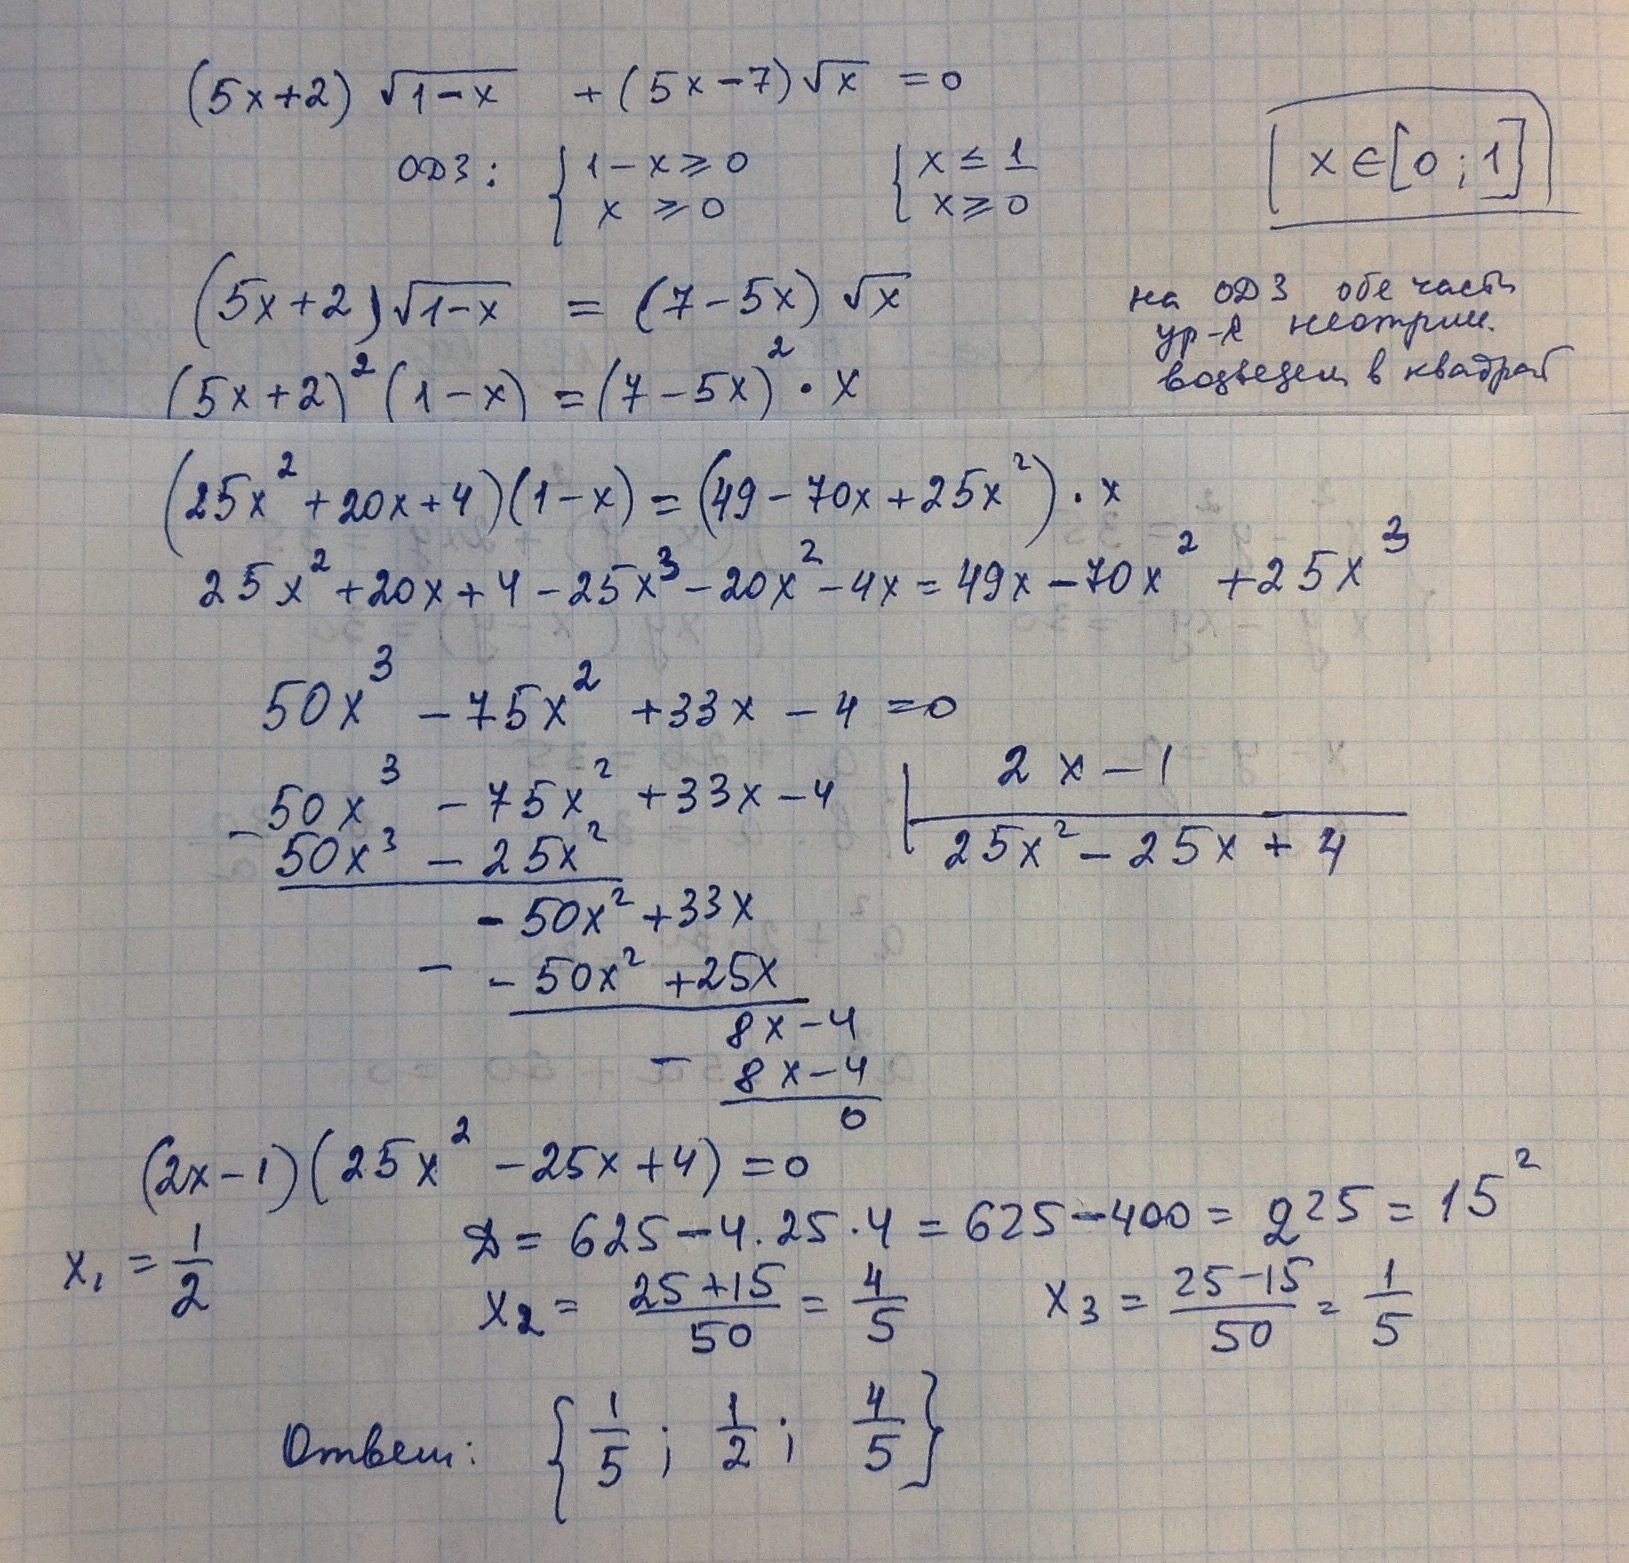 (5x+2) √(1-x) + (5x-7)√x = 0
ОДЗ: { 1-x ≥ 0 { x ≤ 1
x ≥ 0 x ≥ 0
x ∈ [0 ; 1]
(5x+2)√(1-x) = (7-5x) √x
на ОДЗ обе части
ур-я неотриц.
возведем в квадрат
(5x+2)² (1-x) = (7-5x)² · x
(25x² + 20x + 4)(1-x) = (49 - 70x + 25x²) · x
25x² + 20x + 4 - 25x³ - 20x² - 4x = 49x - 70x² + 25x³
50x³ - 75x² + 33x - 4 = 0
50x³ - 75x² + 33x - 4 | 2x - 1
- 50x³ - 25x² 25x² - 25x + 4
- 50x² + 33x
- - 50x² + 25x
8x - 4
- 8x - 4
0
(2x-1)(25x² - 25x + 4) = 0
x₁ = 1/2 D = 625 - 4·25·4 = 625 - 400 = 225 = 15²
x₂ = (25+15)/50 = 4/5 x₃ = (25-15)/50 = 1/5
Ответ: {1/5 ; 1/2 ; 4/5}